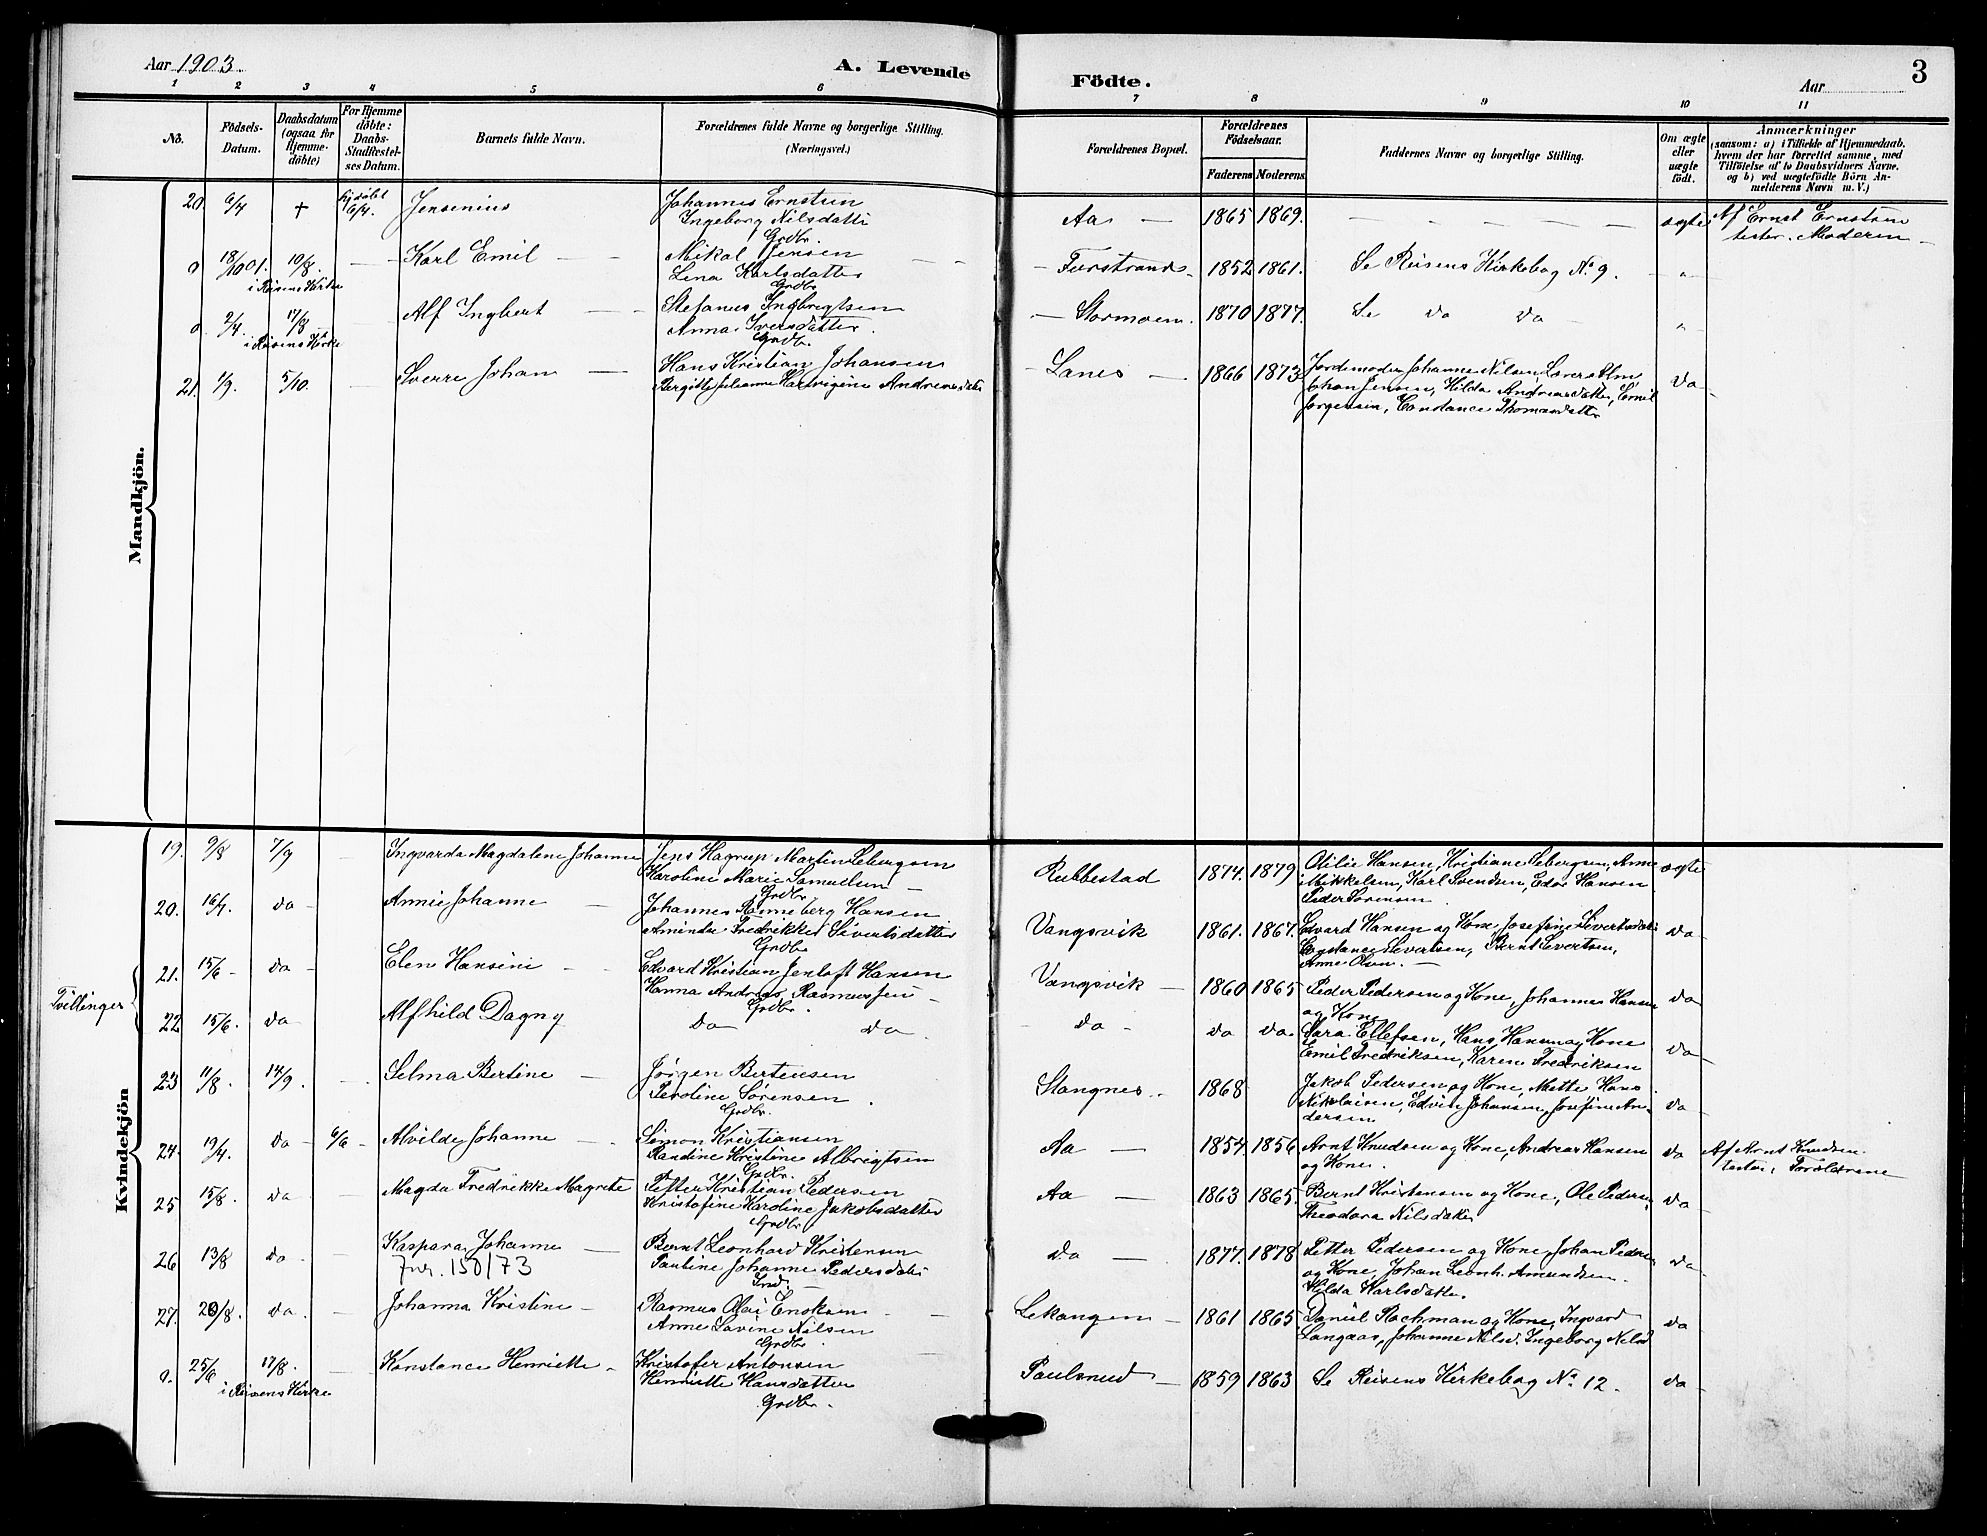 Aar 1903.
A. Levende Födte.
Aar
3
1 2 3 4 5 6 7 8 9 10 11
No.
Födsels-Datum.
Daabsdatum (ogsaa for Hjemme-döbte)
For Hjemme döbte: Daabs-Stadfæstel-ses Datum.
Barnets fulde Navn.
Forældrenes fulde Navne og borgerlige Stilling. (Næringsvei.)
Forældrenes Bopæl.
Forældrenes Födselsaar.
Faderens Moderens
Faddernes Navne og borgerlige Stilling.
Om ægte eller uægte födt.
Anmærkninger (saasom: a) i Tilfælde af Hjemmedaab, hvem der har forrettet samme, med Tilföielse af to Daabsvidners Navne, og b) ved uægtefödte Börn An-melderens Navn m. V.)
Mandkjön.
20. 6/4 † hjdöbt 6/4. Jensenius Johannes Ernstsen Ingeborg Nilsdatter Grdbr. Aa 1865 1869. ægte Af Ernst Ernstsen Moderen
0 18/10 01. 10/8. i Reisens Kirke Karl Emil Mikal Jensen Lena Karlsdatter Grdbr 1852 1861. Se Reisens Kirkebog No 9. "
0. 2/4. 17/8 i Reisens Kirke Alf Ingbert Stefanus Ingbrigtsen Anna Iversdatter. Grdbr. Stormoen. 1870 1877. Se do do "
21. 1/9. 5/10. Sverre Johan Hans Kristian Johansen Bergitte Julianne Hartvigine Andreasdatter Lanes 1866 1873 Jordemoder Johanne Nilsen, Johan Jensen, Hilda Andreasdatter, Emil Jørgensen, Constance Thomasdatter do
Kvindekjön
19. 9/8 7/9 Ingvarda Magdalene Johanne Jens Hagrup Martin Sebergsen Karoline Marie Samuelsen Grdbr Rubbestad 1874. 1879 Otilie Hansen, Kristiane Sebergsen, Anne Mikkelsen, Karl Svendsen, Edor Hansen Peder Sørensen ægte
20. 16/7. do Annie Johanne Johannes Ranneberg Hansen Aminda Fredrikke Sivertsdatter Grdbr Vangsvik 1861. 1867. Edvard Hansen og Kone, Josefine Sivertsdatter Constance Sivertsen, Bernt Sivertsen, Anne Olsen. do
Tvillinger
21. 15/6 do Elen Hansine Edvard Kristian Jenloft Hansen Hanna Andrea Rasmussen Grdbr. Vangsvik 1860 1865 Peder Pedersen og Kone, Johannes Hansen og Kone do
22 15/6. do Alfhild Dagny do do do do do. Sara Ellefsen, Hans Hansen og Kone Emil Fredriksen, Karen Fredriksen do
23 11/8. 14/9. Selma Bertine Jørgen Bertensen Peroline Sørensen. Grdbr. Stangnes 1868 Jakob Pedersen og Kone, Mette Hans Nikolaisen, Edvin Johansen, Josefine Andersen do
24. 19/4. do 6/6 Alvilde Johanne Simon Kristiansen Randine Kristine Albrigtsen Grdbr. Aa 1854 1856 Arnt Knudsen og Kone, Andreas Hansen og Kone. do Af Arnt Knudsen Forældrene
25 15/8. do Magda Fredrikke Magrete Petter Kristian Pedersen Kristofine Karoline Jakobsdatter Grdbr Aa 1863 1865. Bernt Kristensen og Kone, Ole Pedersen, Theodora Nilsdatter do
26 13/8 do Kaspara Johanne Jnr. 150/73 Bernt Leonhard Kristensen Pauline Johanne Pedersdatter Ind. do 1877. 1878 Petter Pedersen og Kone, Johan Pedersen og Kone, Johan Leonh. Amundsen. Hilda Karlsdatter. do
27. 20/8. do. Johanna Kristine Rasmus Olai Enoksen Anne Lovine Nilsen Grdbr. Lekangen 1861 1865 Daniel Rachman og Kone, Ingvard Langaas, Johanne Nilsd. Ingeborg Nilsd do
0. 25/6 17/8. i Reisens Kirke Konstance Henriette Kristofer Antonsen Henriette Hansdatter Grdbr. Paulsrud 1859 1863 Se Reisens Kirkebog No 12. do